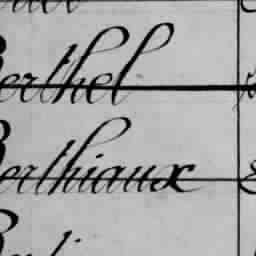 Berthel
Berthiaux